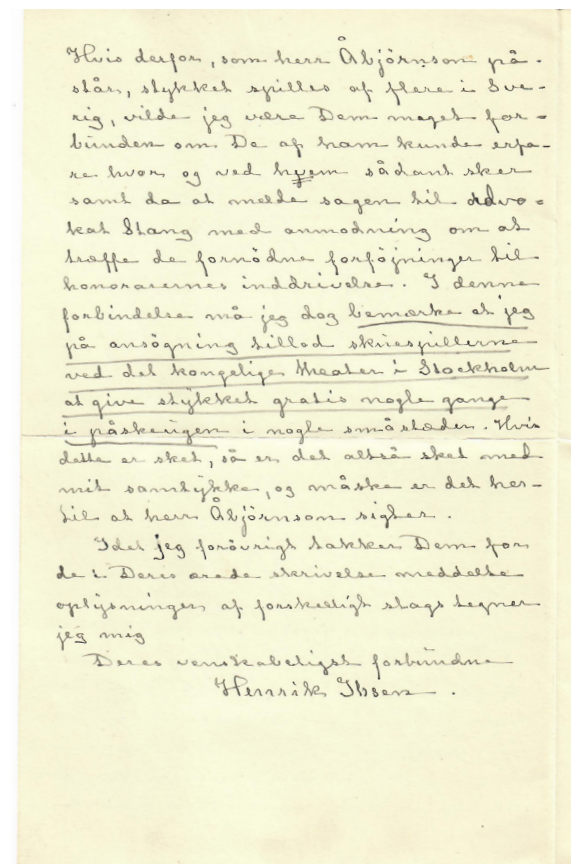 Hvis derfor, som herr Åbjörnson på-
står, stykket spilles af flere i Sve-
rig, vilde jeg være Dem meget for-
bunden om De af ham kunde erfa-
re hvor og ved hvem sådant sker
samt da at melde sagen til advo-
kat Stang med anmodning om at
træffe de fornödne forföjninger til
honorarernes inddrivelse. I denne
forbindelse må jeg dog bemærke at jeg
på ansögning tillod skuespillerne
ved det kongelige theater i Stockholm
at give stykket gratis nogle gange
i påskeugen i nogle småstæder. Hvis
dette er sket, så er det altså sket med
mit samtykke, og måske er det her-
til at herr Åbjörnson sigter.
Idet jeg forövrigt takker Dem for
de i Deres ærede skrivelse meddelte
oplysninger af forskelligt slags tegner
jeg mig
Deres venskabeligst forbundne
Henrik Ibsen.